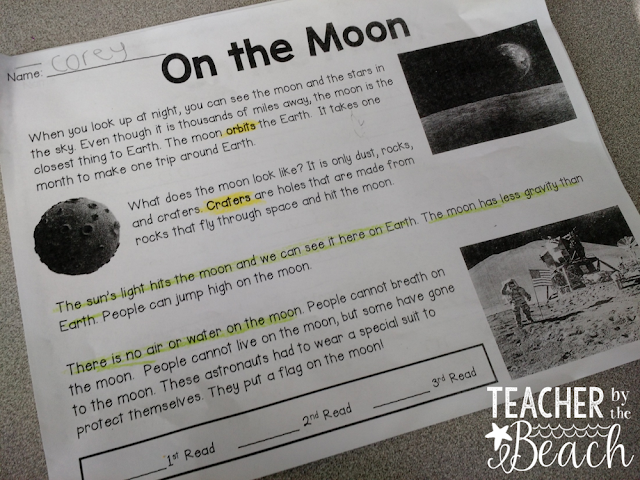 Name: Corey
On the Moon
When you look up at night, you can see the moon and the stars in
the sky. Even though it is thousands of miles away, the moon is the
closest thing to Earth. The moon orbits the Earth. It takes one
month to make one trip around Earth.
What does the moon look like? It is only dust, rocks,
and craters. Craters are holes that are made from
rocks that fly through space and hit the moon.
The sun's light hits the moon and we can see it here on Earth. The moon has less gravity than
Earth. People can jump high on the moon.
There is no air or water on the moon. People cannot breath on
the moon. People cannot live on the moon, but some have gone
to the moon. These astronauts had to wear a special suit to
protect themselves. They put a flag on the moon!
______1st Read ______ 2nd Read ______ 3rd Read
TEACHER by the
Beach